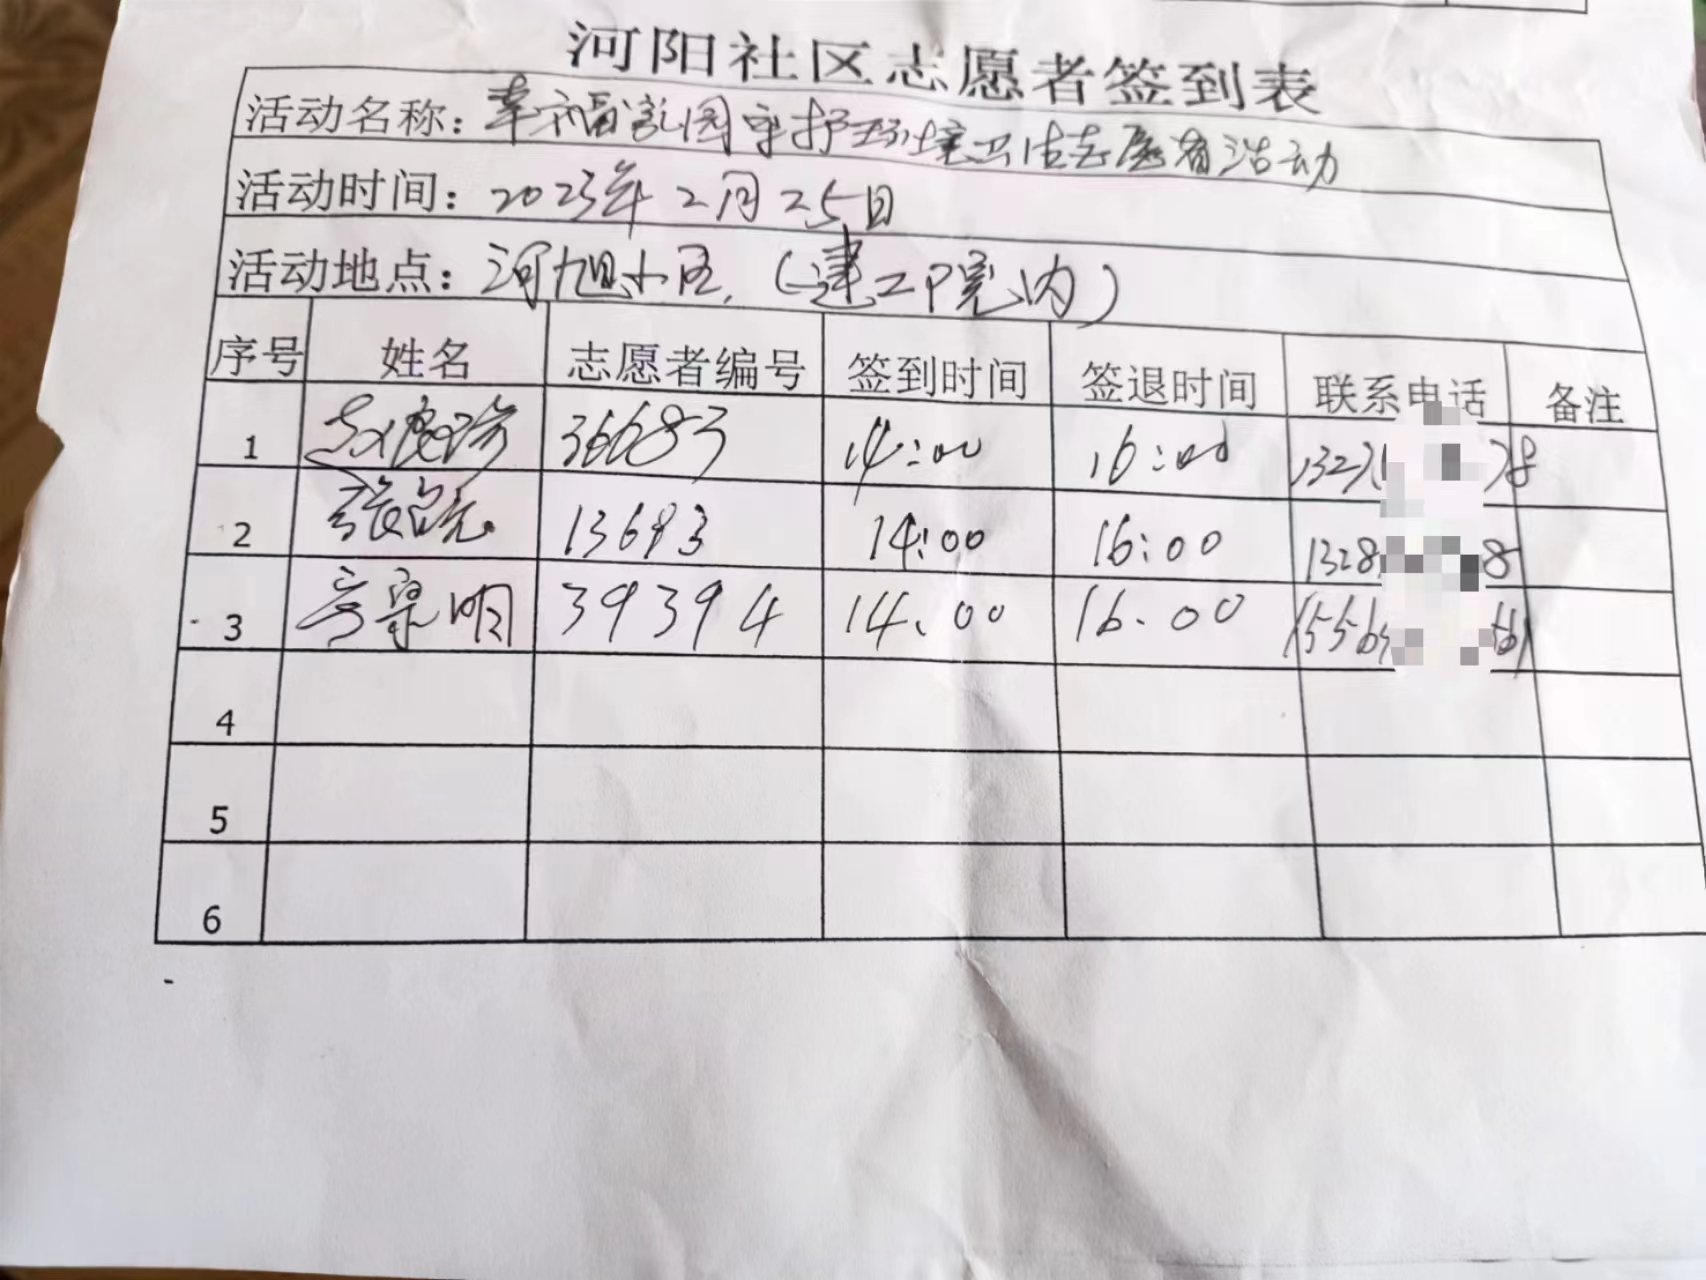 河阳社区志愿者签到表
活动名称：幸福家园守护环境卫生志愿者活动
活动时间：2023年2月25日
活动地点：河旭小区.（建工P宪内）
序号 姓名 志愿者编号 签到时间 签退时间 联系电话 备注
1 36683 14:00 16:00 1327 78
2 张 13693 14:00 16:00 1328 8
3 明 39394 14:00 16:00 1556 561
4
5
6